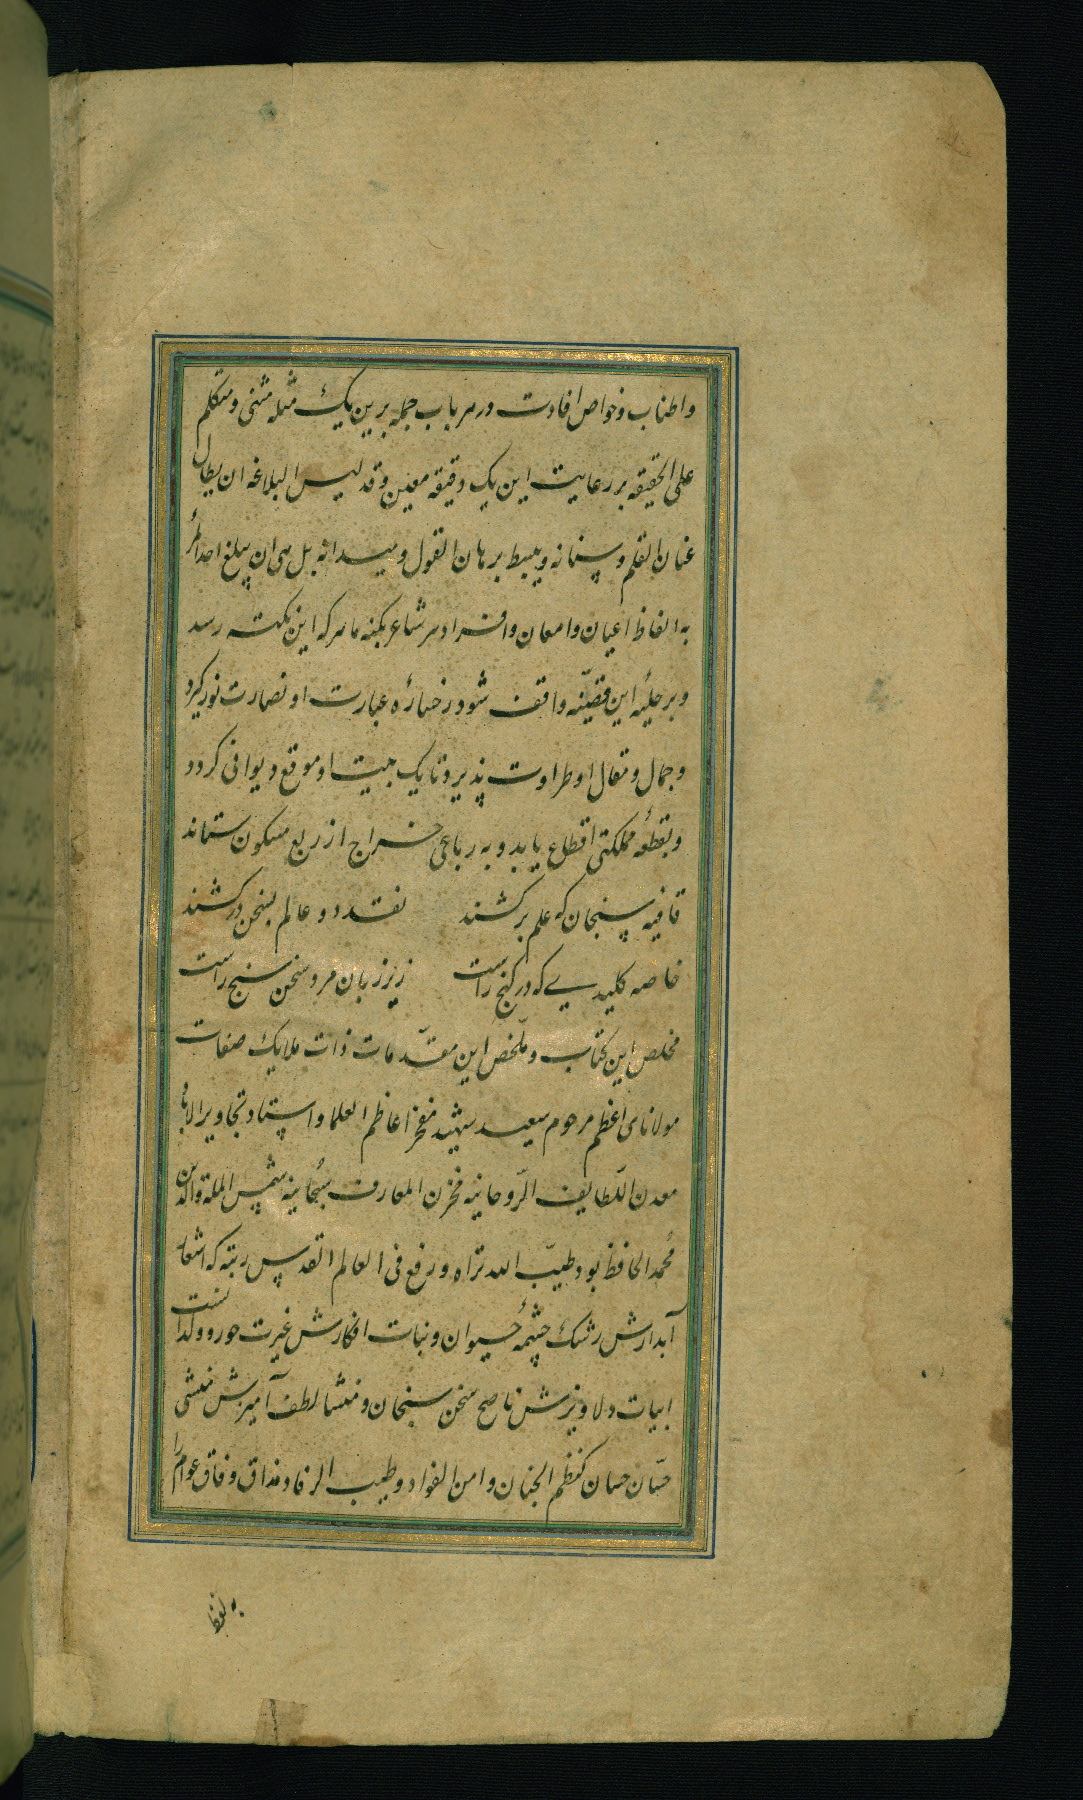 و اطناب و خواص افادت در هر باب جمله برین یک مثله مثنی و متکلم
علی الحقیقه بر رعایت این یک دقیقه معین و قد لیس البلاغه ان یطال
عنان القلم و سنانه و یبسط برهان القول و میدانه بل هی ان یبلغ احد المر
به الفاظ اعیان و امعان و افراد هر شاعر بکنه ماهر که این نکته رسد
و بر حلیهٔ این قضیّه واقف شود رخسارهٔ عبارت او نضارت نور گیرد
و جمال و مقال او طراوت پذیرد تا یک بیت او موقع دیوانی گردد
و بقطعهٔ مملکتی اقطاع یابد و به رباعی خراج از ربع مسکون ستاند
قافیه سنجان که علم بر کشند نقد دو عالم بسخن در کشند
خاصه کلیدیے که در گنج راست زیر زبان مرد سخن سنج راست
مخلص این کتاب و ملخّص این مقدّمات ذات ملایک صفات
مولانای اعظم مرحوم سعید شهید مفخر اعاظم العلما و استاد نحاریر الادبا
معدن اللّطایف الرّوحانیه مخزن المعارف سُبحانیه شمس الملة والدین
مُحمد الحافظ بود طیّب الله تراه و رفع فی العالم القدس رتبته که اشعار
آبدارش رشک چشمهٔ حُیوان و نبات افکارش غیرت حور و ولدانست
ابیات دلاویزش ناصح سخن سنجان و منشا لطف آمیزش منشی
حسّان حسان کنظم الجنان و امن الفواد و طیب الرقاد مذاق و فاق عوام را
به لفظ